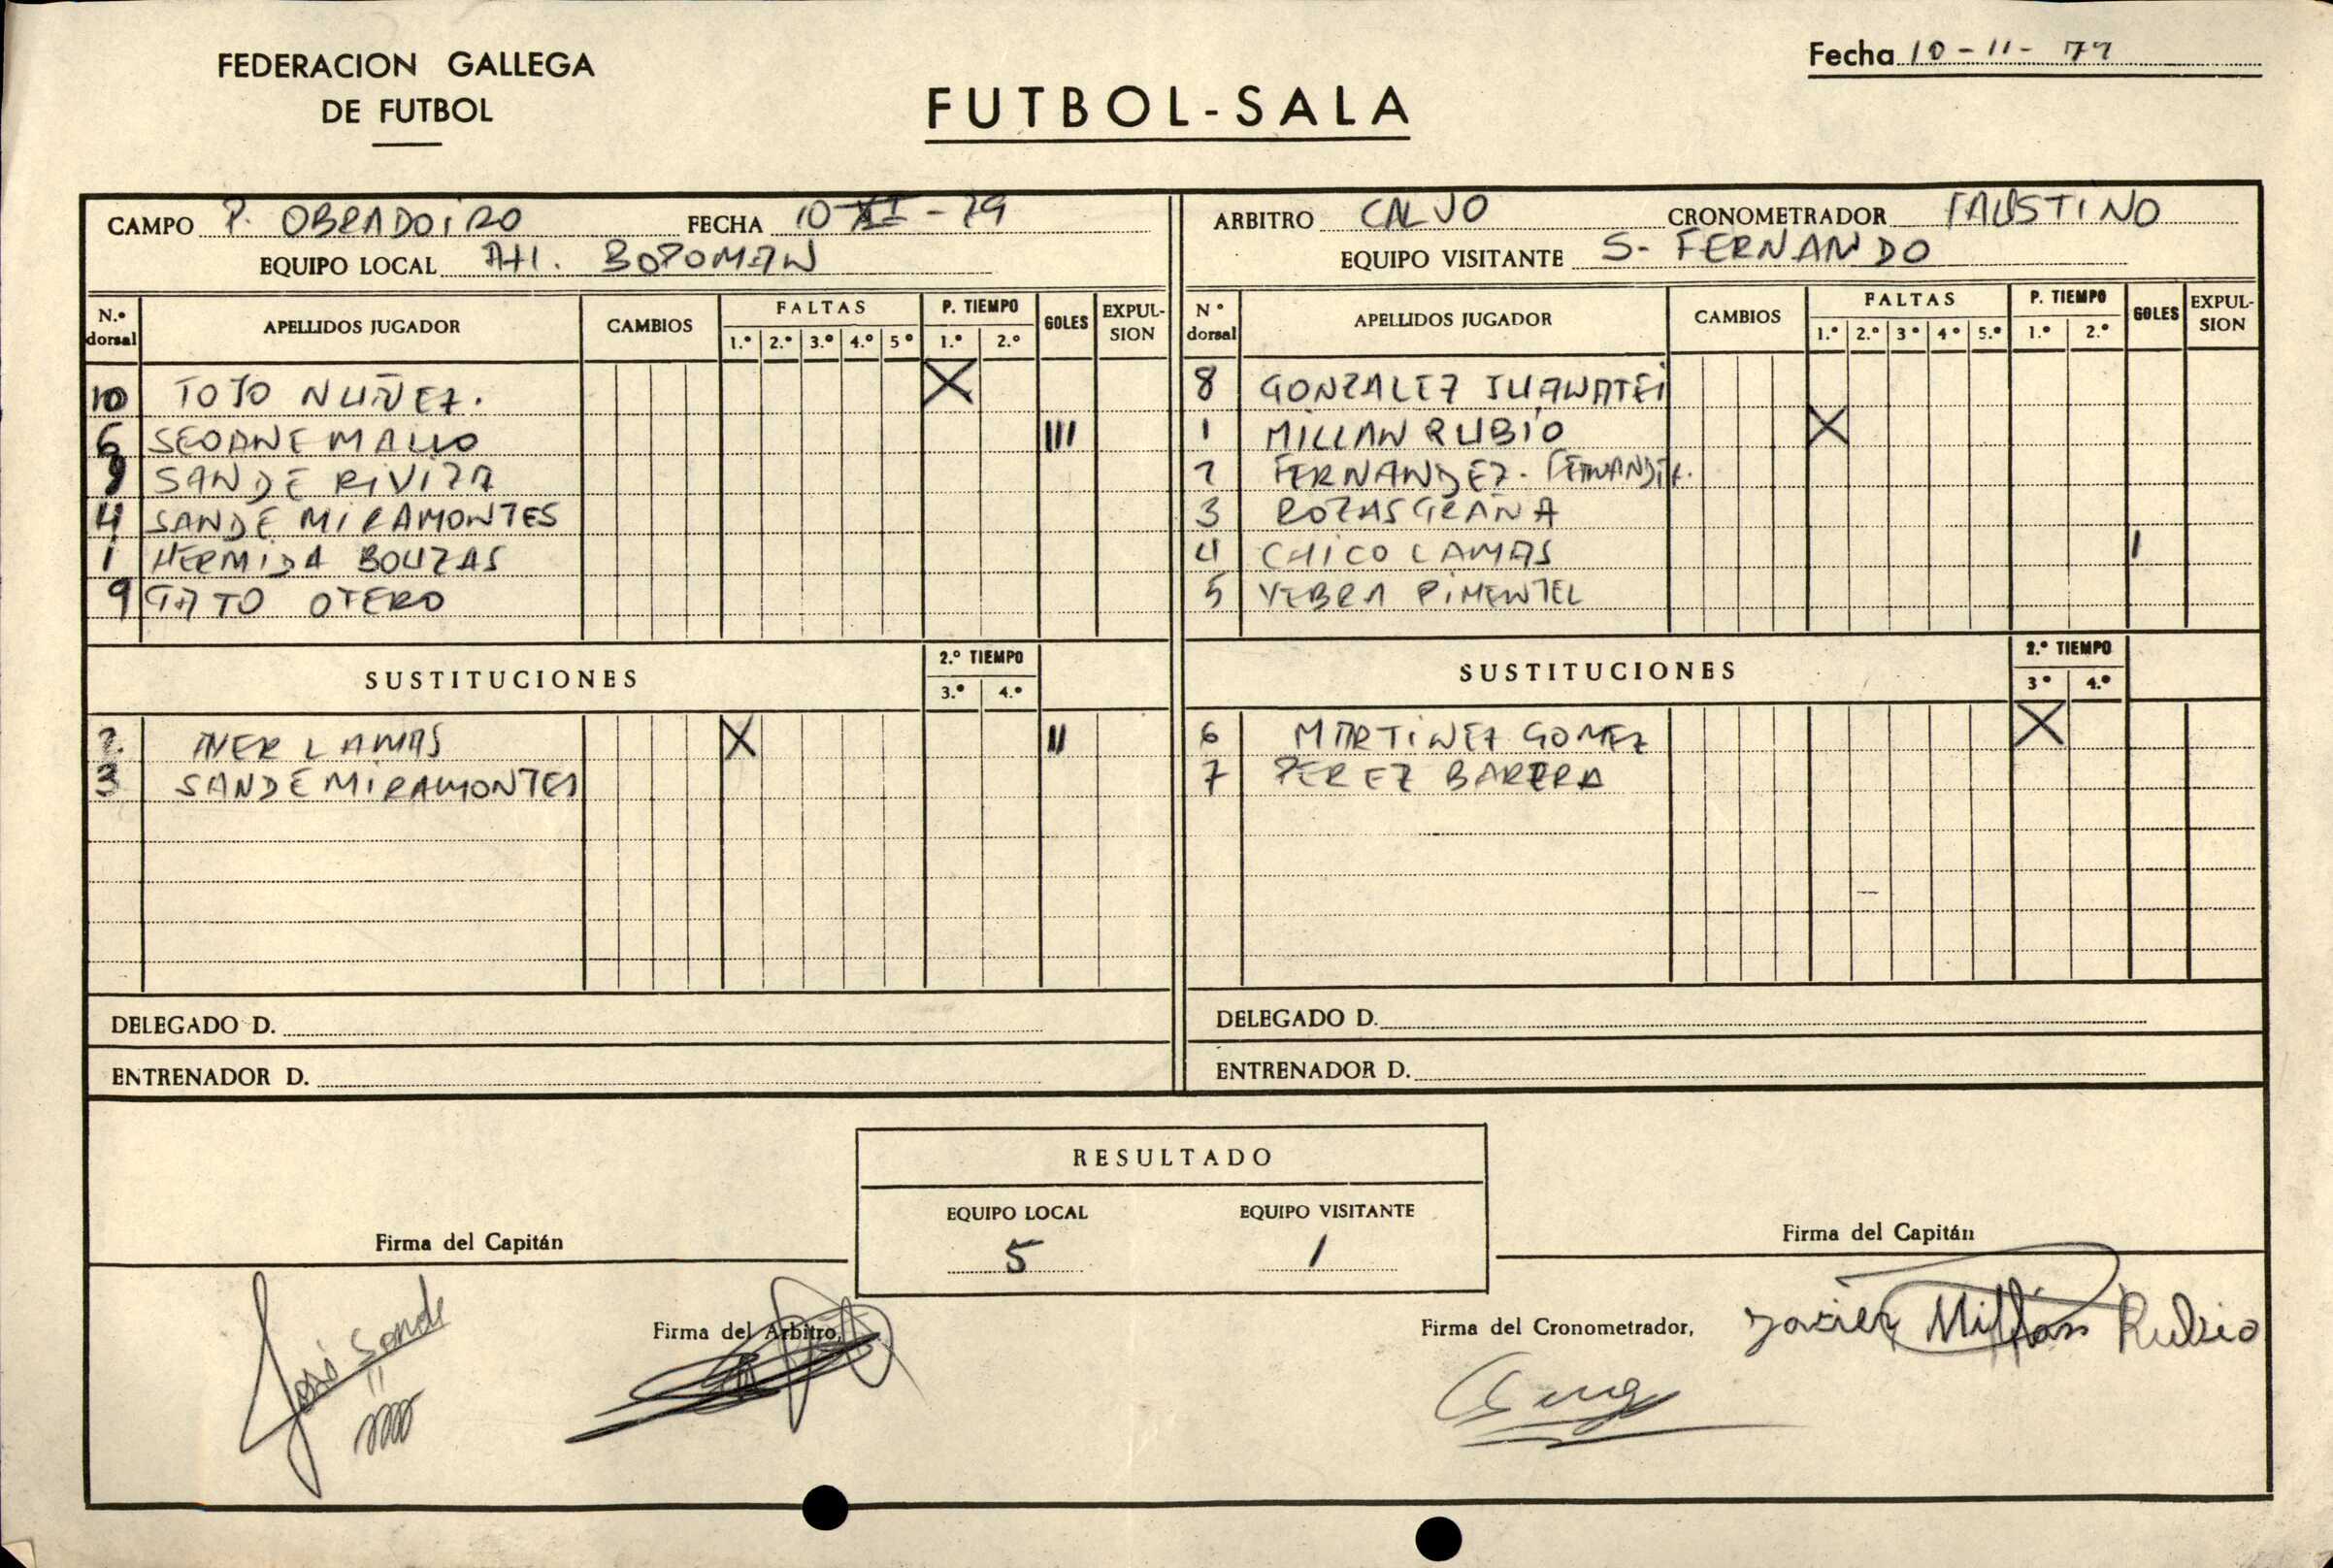 FEDERACION GALLEGA
DE FUTBOL
FUTBOL-SALA
Fecha 10-11-79
CAMPO P. OBRADOIRO FECHA 10-XI-79
EQUIPO LOCAL Atl. BOPOMAN
ARBITRO CALVO CRONOMETRADOR FAUSTINO
EQUIPO VISITANTE S. FERNANDO
N.º dorsal APELLIDOS JUGADOR CAMBIOS FALTAS 1.º 2.º 3.º 4.º 5º P. TIEMPO 1.º 2.º GOLES EXPULSION
10 TOJO NUÑEZ. X
6 SEOANE MALLO III
SANDE
4 SANDE MIRAMONTES
1 HERMIDA BOUZAS
9 TATO OTERO
SUSTITUCIONES 2.º TIEMPO 3.º 4.º
2. LAMAS X II
3 SANDE MIRAMONTES
DELEGADO D.
ENTRENADOR D.
Nº dorsal APELLIDOS JUGADOR CAMBIOS FALTAS 1.º 2.º 3º 4º 5.º P. TIEMPO 1.º 2.º GOLES EXPULSION
8 GONZALEZ JUANATEI
1 MILLAN RUBIO X
2 FERNANDEZ.
3 ROZAS GRAÑA
4 CHICO LAMAS I
5 YEBRA PIMENTEL
SUSTITUCIONES 2.º TIEMPO 3º 4.º
6 MARTINEZ GOMEZ X
7 PEREZ BARRRA
DELEGADO D.
ENTRENADOR D.
RESULTADO
EQUIPO LOCAL EQUIPO VISITANTE
5 1
Firma del Capitán
Firma del Capitán
José Sande
Firma del Arbitro,
Firma del Cronometrador,
Javier Millán Rubio